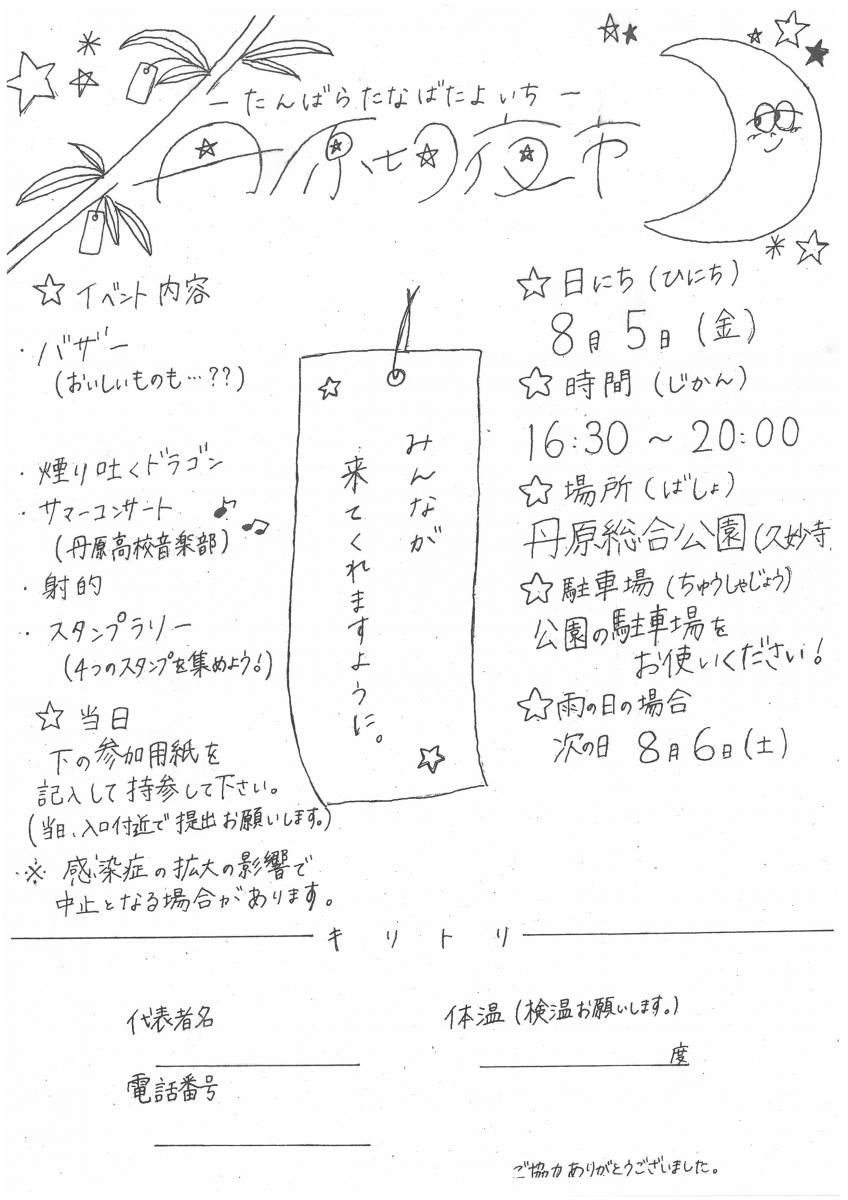 －たんばらたなばたよいち－
丹原七夕夜市
☆イベント内容
・バザー
(おいしいものも…??)
・煙り吐くドラゴン
・サマーコンサート
(丹原高校音楽部)
・射的
・スタンプラリー
(4つのスタンプを集めよう!)
☆当日
下の参加用紙を
記入して持参して下さい。
(当日、入口付近で提出お願いします。)
※感染症の拡大の影響で
中止となる場合があります。
みんなが
来てくれますように。
☆日にち(ひにち)
8月5日(金)
☆時間(じかん)
16:30～20:00
☆場所(ばしょ)
丹原総合公園(久妙寺
☆駐車場(ちゅうしゃじょう)
公園の駐車場を
お使いください!
☆雨の日の場合
次の日 8月6日(土)
キリトリ
代表者名
電話番号
体温(検温お願いします。)
度
ご協力ありがとうございました。